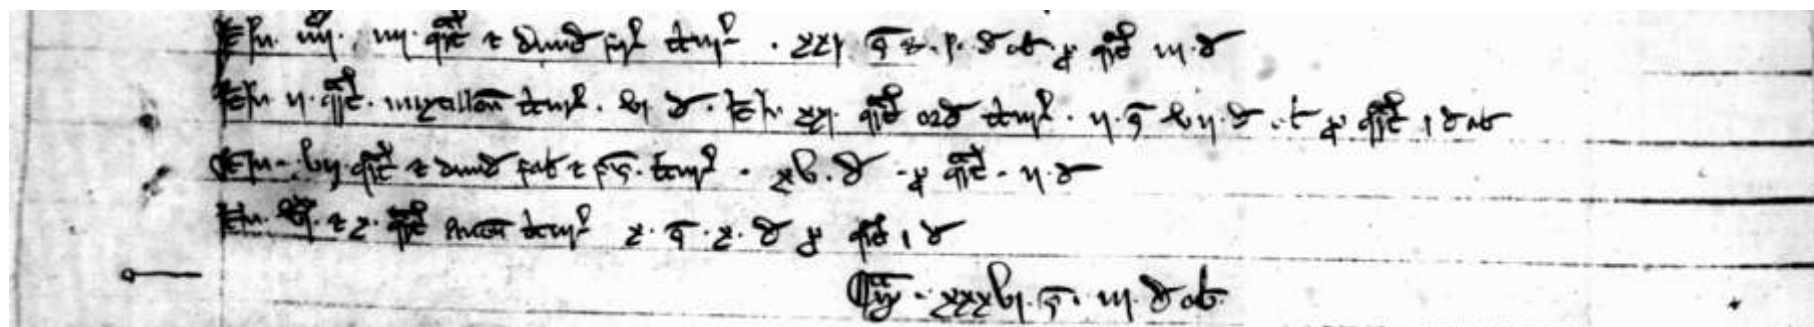 Itm iiij^xx. iiij. qrt & dimid fr' temp' . xxj s & j. d ob p qrt iij d
Itm ij. qrt. mixtilion temp'. vj d. Itm xxj. qrt ord temp'. ij. s vij. d . ob p qrt j d ob
Itm . vij. qrt & dimid fab & pis. temp' . xv. d . p qrt . ij. d
Itm. vj^xx. & x. qrt auen temp' x. s. x. d p qrt j d
Sm . xxxvj. s. iij. d ob